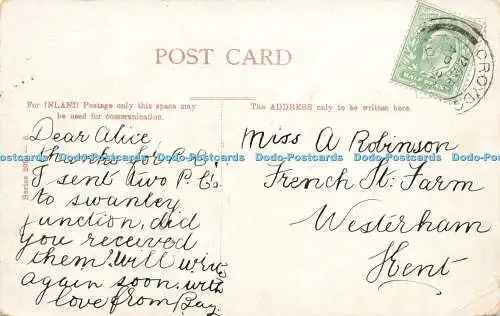 POST CARD
HALFPENNY
CROYDO
For INLAND Postage only this space may
be used for communication.
The ADDRESS only to be written here.
Dear Alice
thanks for P.C.
I sent two P.C's.
to swanley
junction, did
you received
them? will write
again soon, with
love from Bay.
Miss A Robinson
French St: Farm
Westerham
Kent
Postcards Postcards Postcards Postcards Postcards Postcards Postcards Postcards